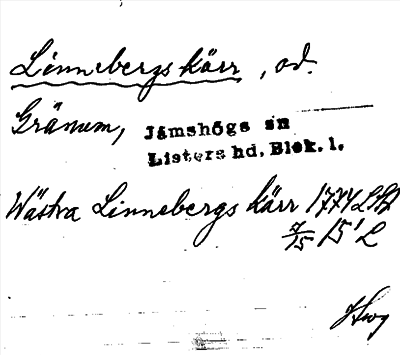 Linnebergs kärr, od.
Gränum, Jämshögs sn
Listers hd, Blek. l.
Wästra Linnebergs kärr 1774 LSA
7/15 15' L
Hwg